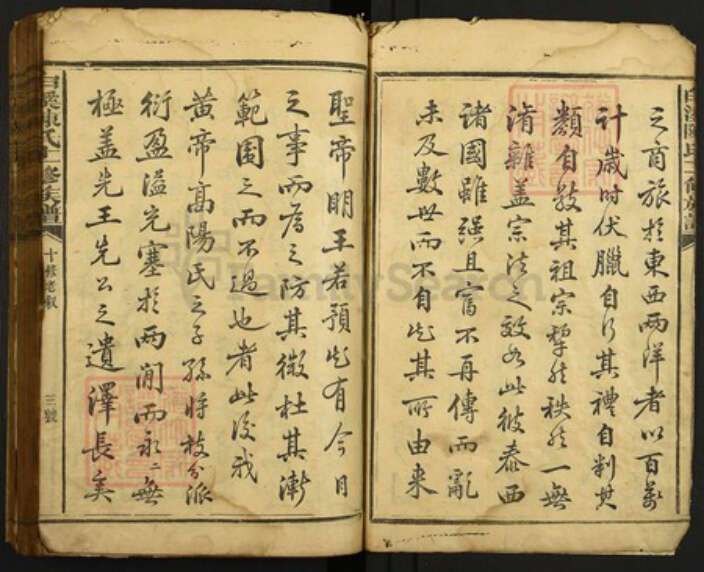 之商旅於東西兩洋者以百萬
計歲時伏臘自行其禮自判其
類自敍其祖宗犂然秩然一無
淆雜蓋宗法之效如此彼泰西
諸國雖強且富不再傳而亂
未及數世而不自知其所由来
聖帝明王若預知有今日
之事而為之防其微杜其漸
範圍之而不過也者此後我
黄帝高陽氏之子孫将枝分派
衍盈溢充塞於兩間而永永無
極蓋先王先公之遺澤長矣
白溪陳氏十修族譜
十修老叙
三號
FamilySearch